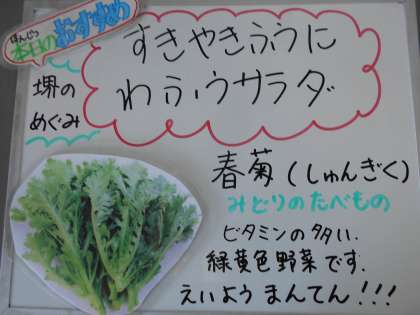 ほんじつ
本日のおすすめ
すきやきふうに
わふうサラダ
堺の
めぐみ
春菊(しゅんぎく)
みどりのたべもの
ビタミンの多い
緑黄色野菜です.
えいようまんてん!!!